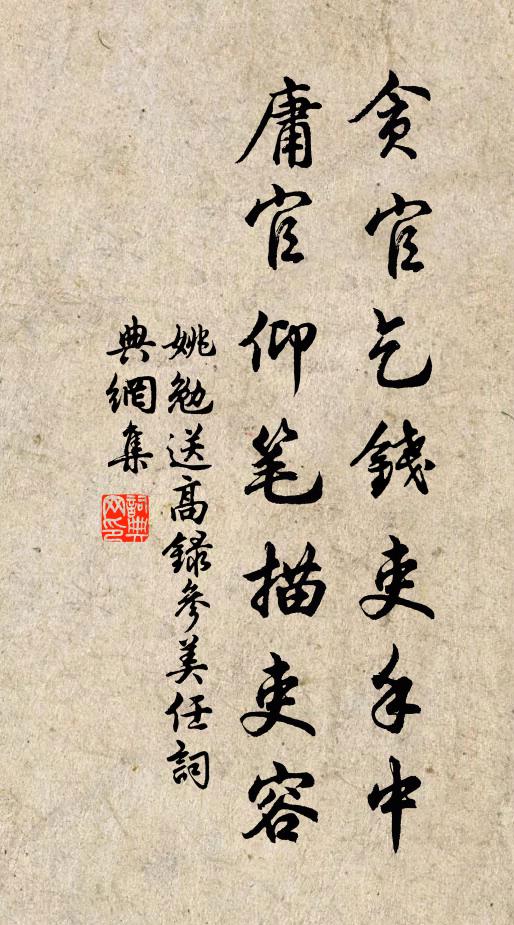 贪官乞錢吏手中
庸官仰笔描吏容
姚勉送高録參美任詞
典網集
詞典
网印